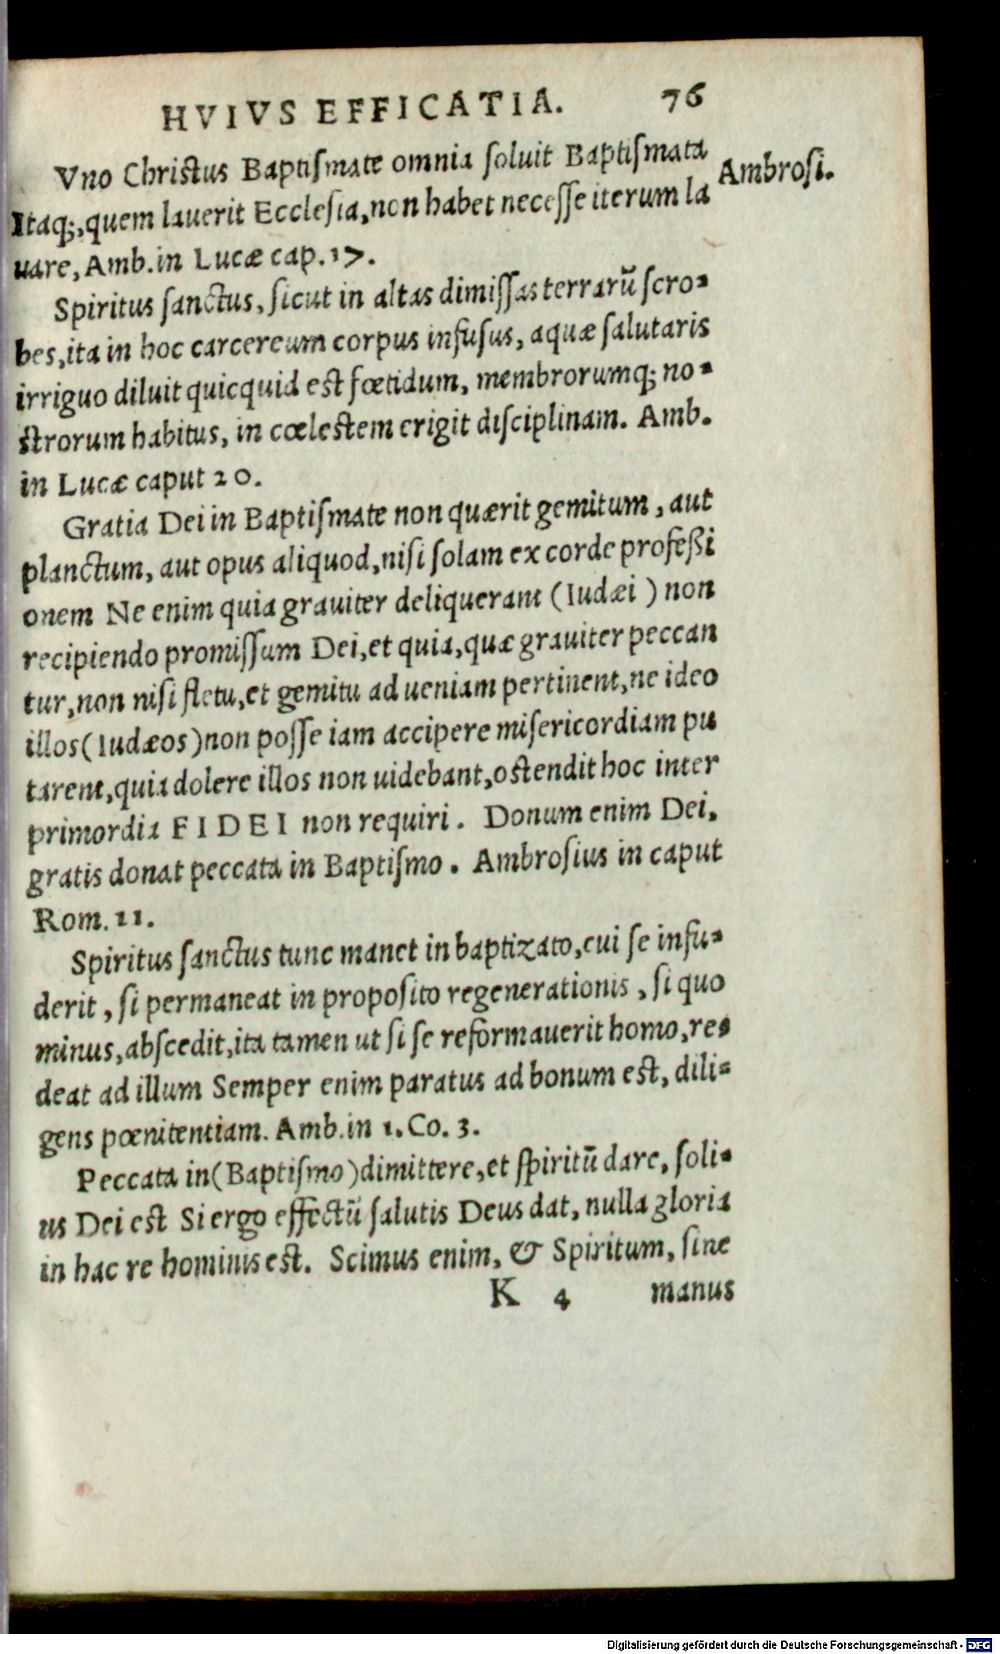 HVIVS EFFICATIA. 76
Vno Christus Baptismate omnia soluit Baptismata
Ambrosi.
Itaq;, quem lauerit Ecclesia, non habet necesse iterum la
uare, Amb. in Lucæ cap. 17.
Spiritus sanctus, sicut in altas dimissas terrarũ scro-
bes, ita in hoc carcereum corpus infusus, aquæ salutaris
irriguo diluit quicquid est fœtidum, membrorumq; no-
strorum habitus, in cœlestem erigit disciplinam. Amb.
in Lucæ caput 20.
Gratia Dei in Baptismate non quærit gemitum, aut
planctum, aut opus aliquod, nisi solam ex corde professi
onem Ne enim quia grauiter deliquerant (Iudæi) non
recipiendo promissum Dei, et quia, quæ grauiter peccan
tur, non nisi fletu, et gemitu ad ueniam pertinent, ne ideo
illos (Iudæos) non posse iam accipere misericordiam pu
tarent, quia dolere illos non uidebant, ostendit hoc inter
primordia FIDEI non requiri. Donum enim Dei,
gratis donat peccata in Baptismo. Ambrosius in caput
Rom. 11.
Spiritus sanctus tunc manet in baptizato, cui se infu-
derit, si permaneat in proposito regenerationis, si quo
minus, abscedit, ita tamen ut si se reformauerit homo, re-
deat ad illum Semper enim paratus ad bonum est, dili-
gens pœnitentiam. Amb. in 1. Co. 3.
Peccata in (Baptismo) dimittere, et spiritũ dare, soli-
us Dei est Si ergo effectũ salutis Deus dat, nulla gloria
in hac re hominis est. Scimus enim, & Spiritum, sine
K 4 manus
Digitalisierung gefördert durch die Deutsche Forschungsgemeinschaft - DFG